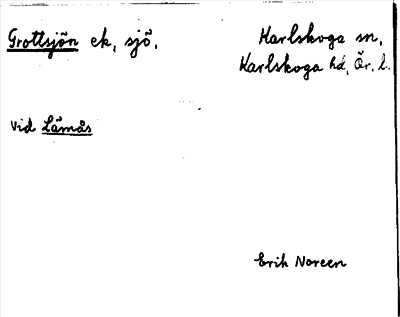 Grottsjön ek, sjö,
Karlskoga sn,
Karlskoga hd, Ör. l.
Vid Låmås
Erik Noreen